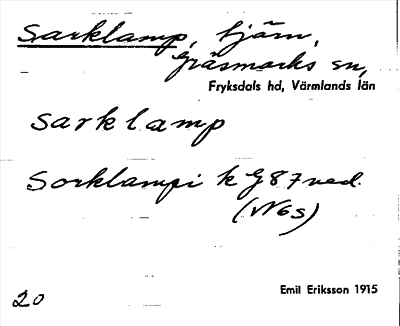 Sarklamp, tjärn,
Gräsmarks sn,
Fryksdals hd, Värmlands län
sarklamp
Sorklampi k G87 ned.
(V6s)
20
Emil Eriksson 1915